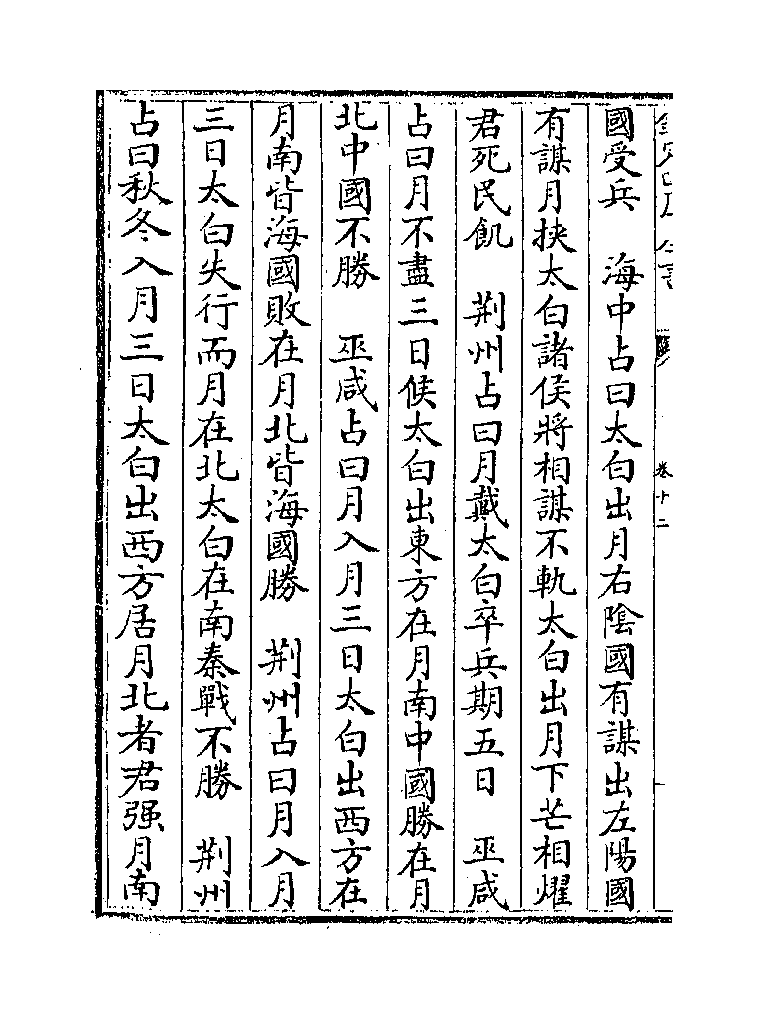 卷十二
國受兵　海中占曰太白出月右陰國有謀出左陽國
有謀月挾太白諸侯將相謀不軌太白出月下芒相耀
君死民飢　荆州占曰月戴太白卒兵期五日　巫咸
占曰月不盡三日候太白出東方在月南中國勝在月
北中國不勝　巫咸占曰月入月三日太白出西方在
月南皆海國敗在月北皆海國勝　荆州占曰月入月
三日太白失行而月在北太白在南秦戰不勝　荆州
占曰秋冬入月三日太白出西方居月北者君强月南